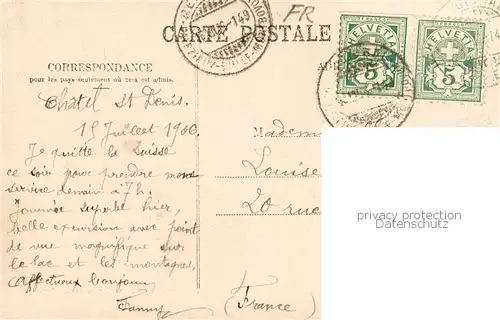 FR
CARTE POSTALE
CORRESPONDANCE
pour les pays seulement où cela est admis.
FRANCO
HELVETIA
5
HELVETIA
5
Chatel St Denis.
15 Juillet 1906.
Je quitte la Suisse
ce soir pour prendre mon
service demain à 7h.
Journée superbe hier,
belle excursion avec point
de vue magnifique sur
le lac et les montagnes,
Affectueux bonjour,
Fanny
Madem
Louise
20 rue
(France)
privacy protection
Datenschutz